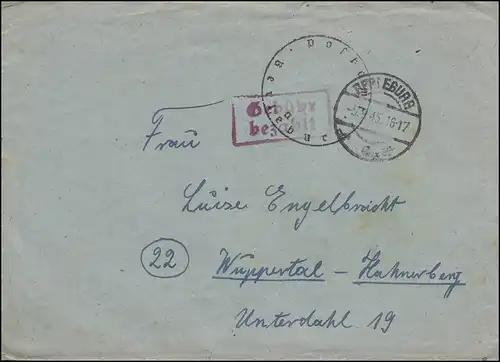 Gebühr
bezahlt
BERLEBURG
45.16-17
Frau
Luise Engelbracht
22
Wuppertal - Hahnerberg
Unterdahl 19